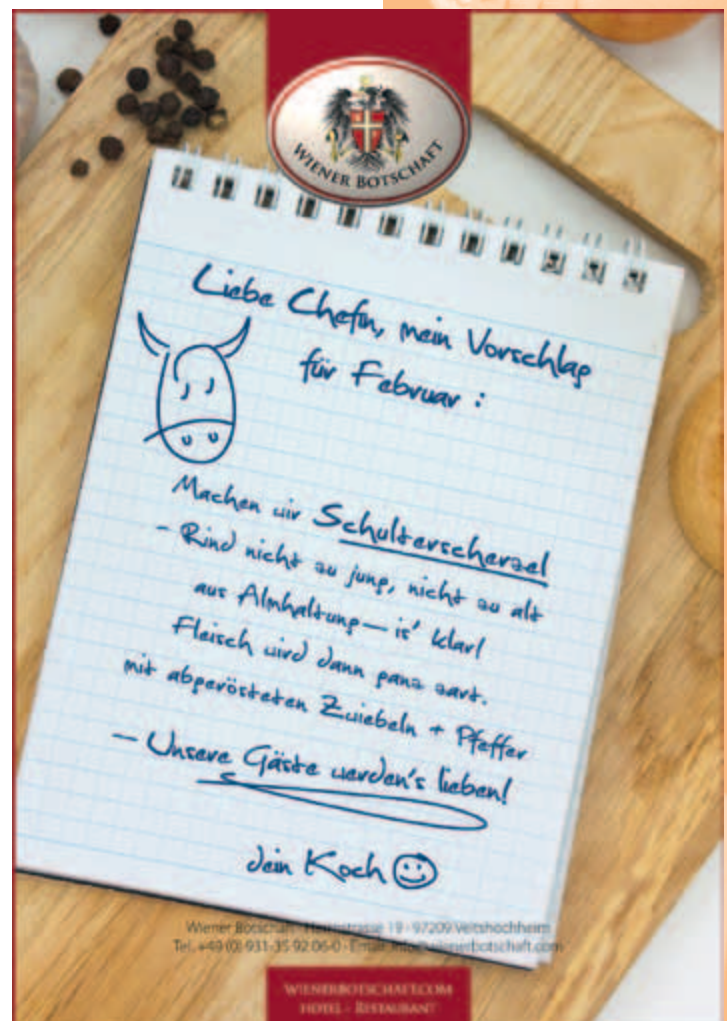 WIENER BOTSCHAFT
Liebe Chefin, mein Vorschlag
für Februar :
Machen wir Schulterscherzel
- Rind nicht zu jung, nicht zu alt
aus Almhaltung — is' klar!
Fleisch wird dann ganz zart.
mit abgerösteten Zwiebeln + Pfeffer
— Unsere Gäste werden's lieben!
dein Koch
Wiener Botschaft · Herrnstrasse 19 · 97209 Veitshöchheim
Tel. +49 (0) 931-35 92 06-0 · Email: info@wienerbotschaft.com
WIENERBOTSCHAFT.COM
HOTEL - RESTAURANT